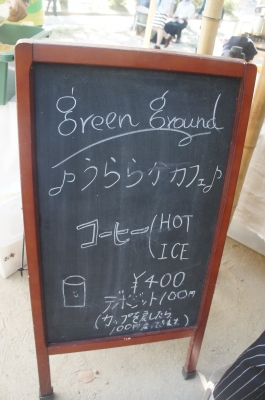 green ground
♪うららかカフェ♪
コーヒー(HOT
ICE
¥400
デポジット100円
(カップを戻したら
100円戻ってきます。)